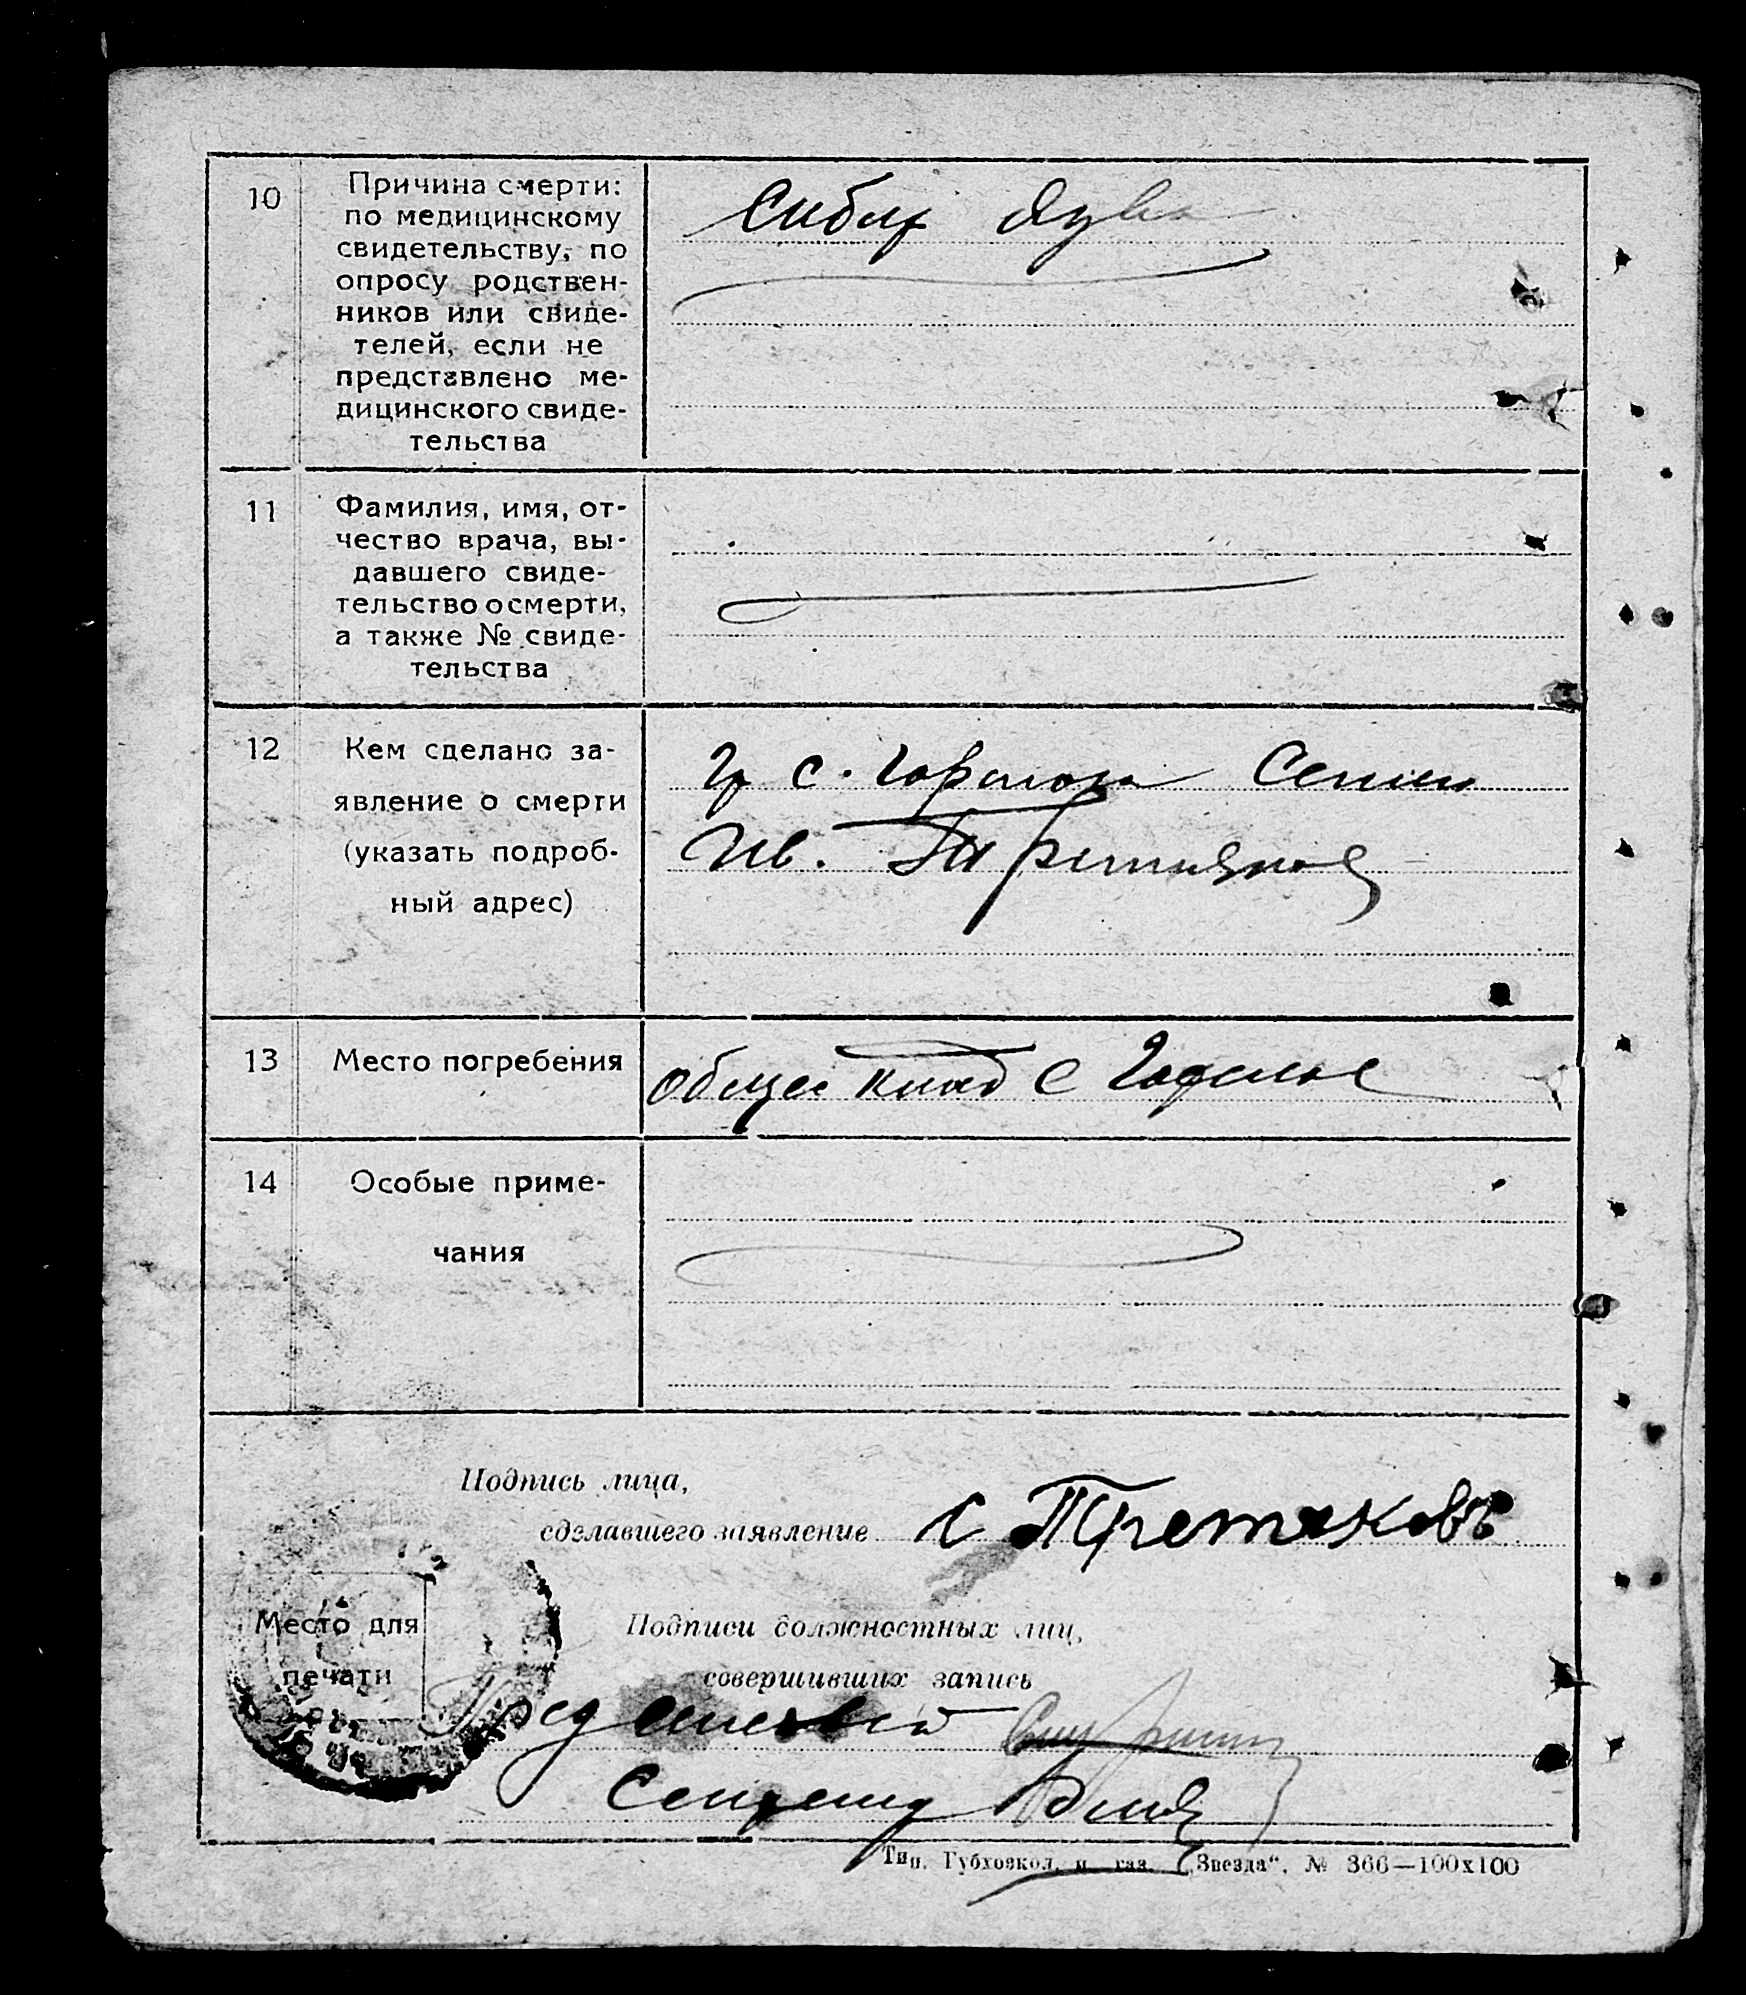 10
Причина смерти:
по медицинскому
свидетельству, по
опросу родствен-
ников или свиде-
телей, если не
представлено ме-
дицинского свиде-
тельства
Сибир язва
11
Фамилия, имя, от-
чество врача, вы-
давшего свиде-
тельство о смерти,
а также № свиде-
тельства
12
Кем сделано за-
явление о смерти
(указать подроб-
ный адрес)
Гр с. Семен
Ив. Третьяков
13
Место погребения
общее клад с
14
Особые приме-
чания
Подпись лица,
сделавшего заявление С Третяковъ
Место для
печати
Подписи должностных лиц,
совершивших запись
Пред
Секретар
Тип. Губхозкол. и газ. „Звезда“. № 366—100х100